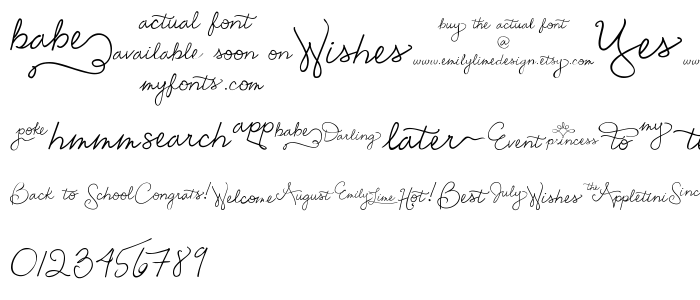 babe actual font available soon on myfonts.com Wishes buy the actual font @ www.emilylimedesign.etsy.com Yes ww
poke hmmm search app babe Darling later Event princess to my t
Back to School Congrats! Welcome August Emily Lime Hot! Best July Wishes the Appletini Sinc
0123456789